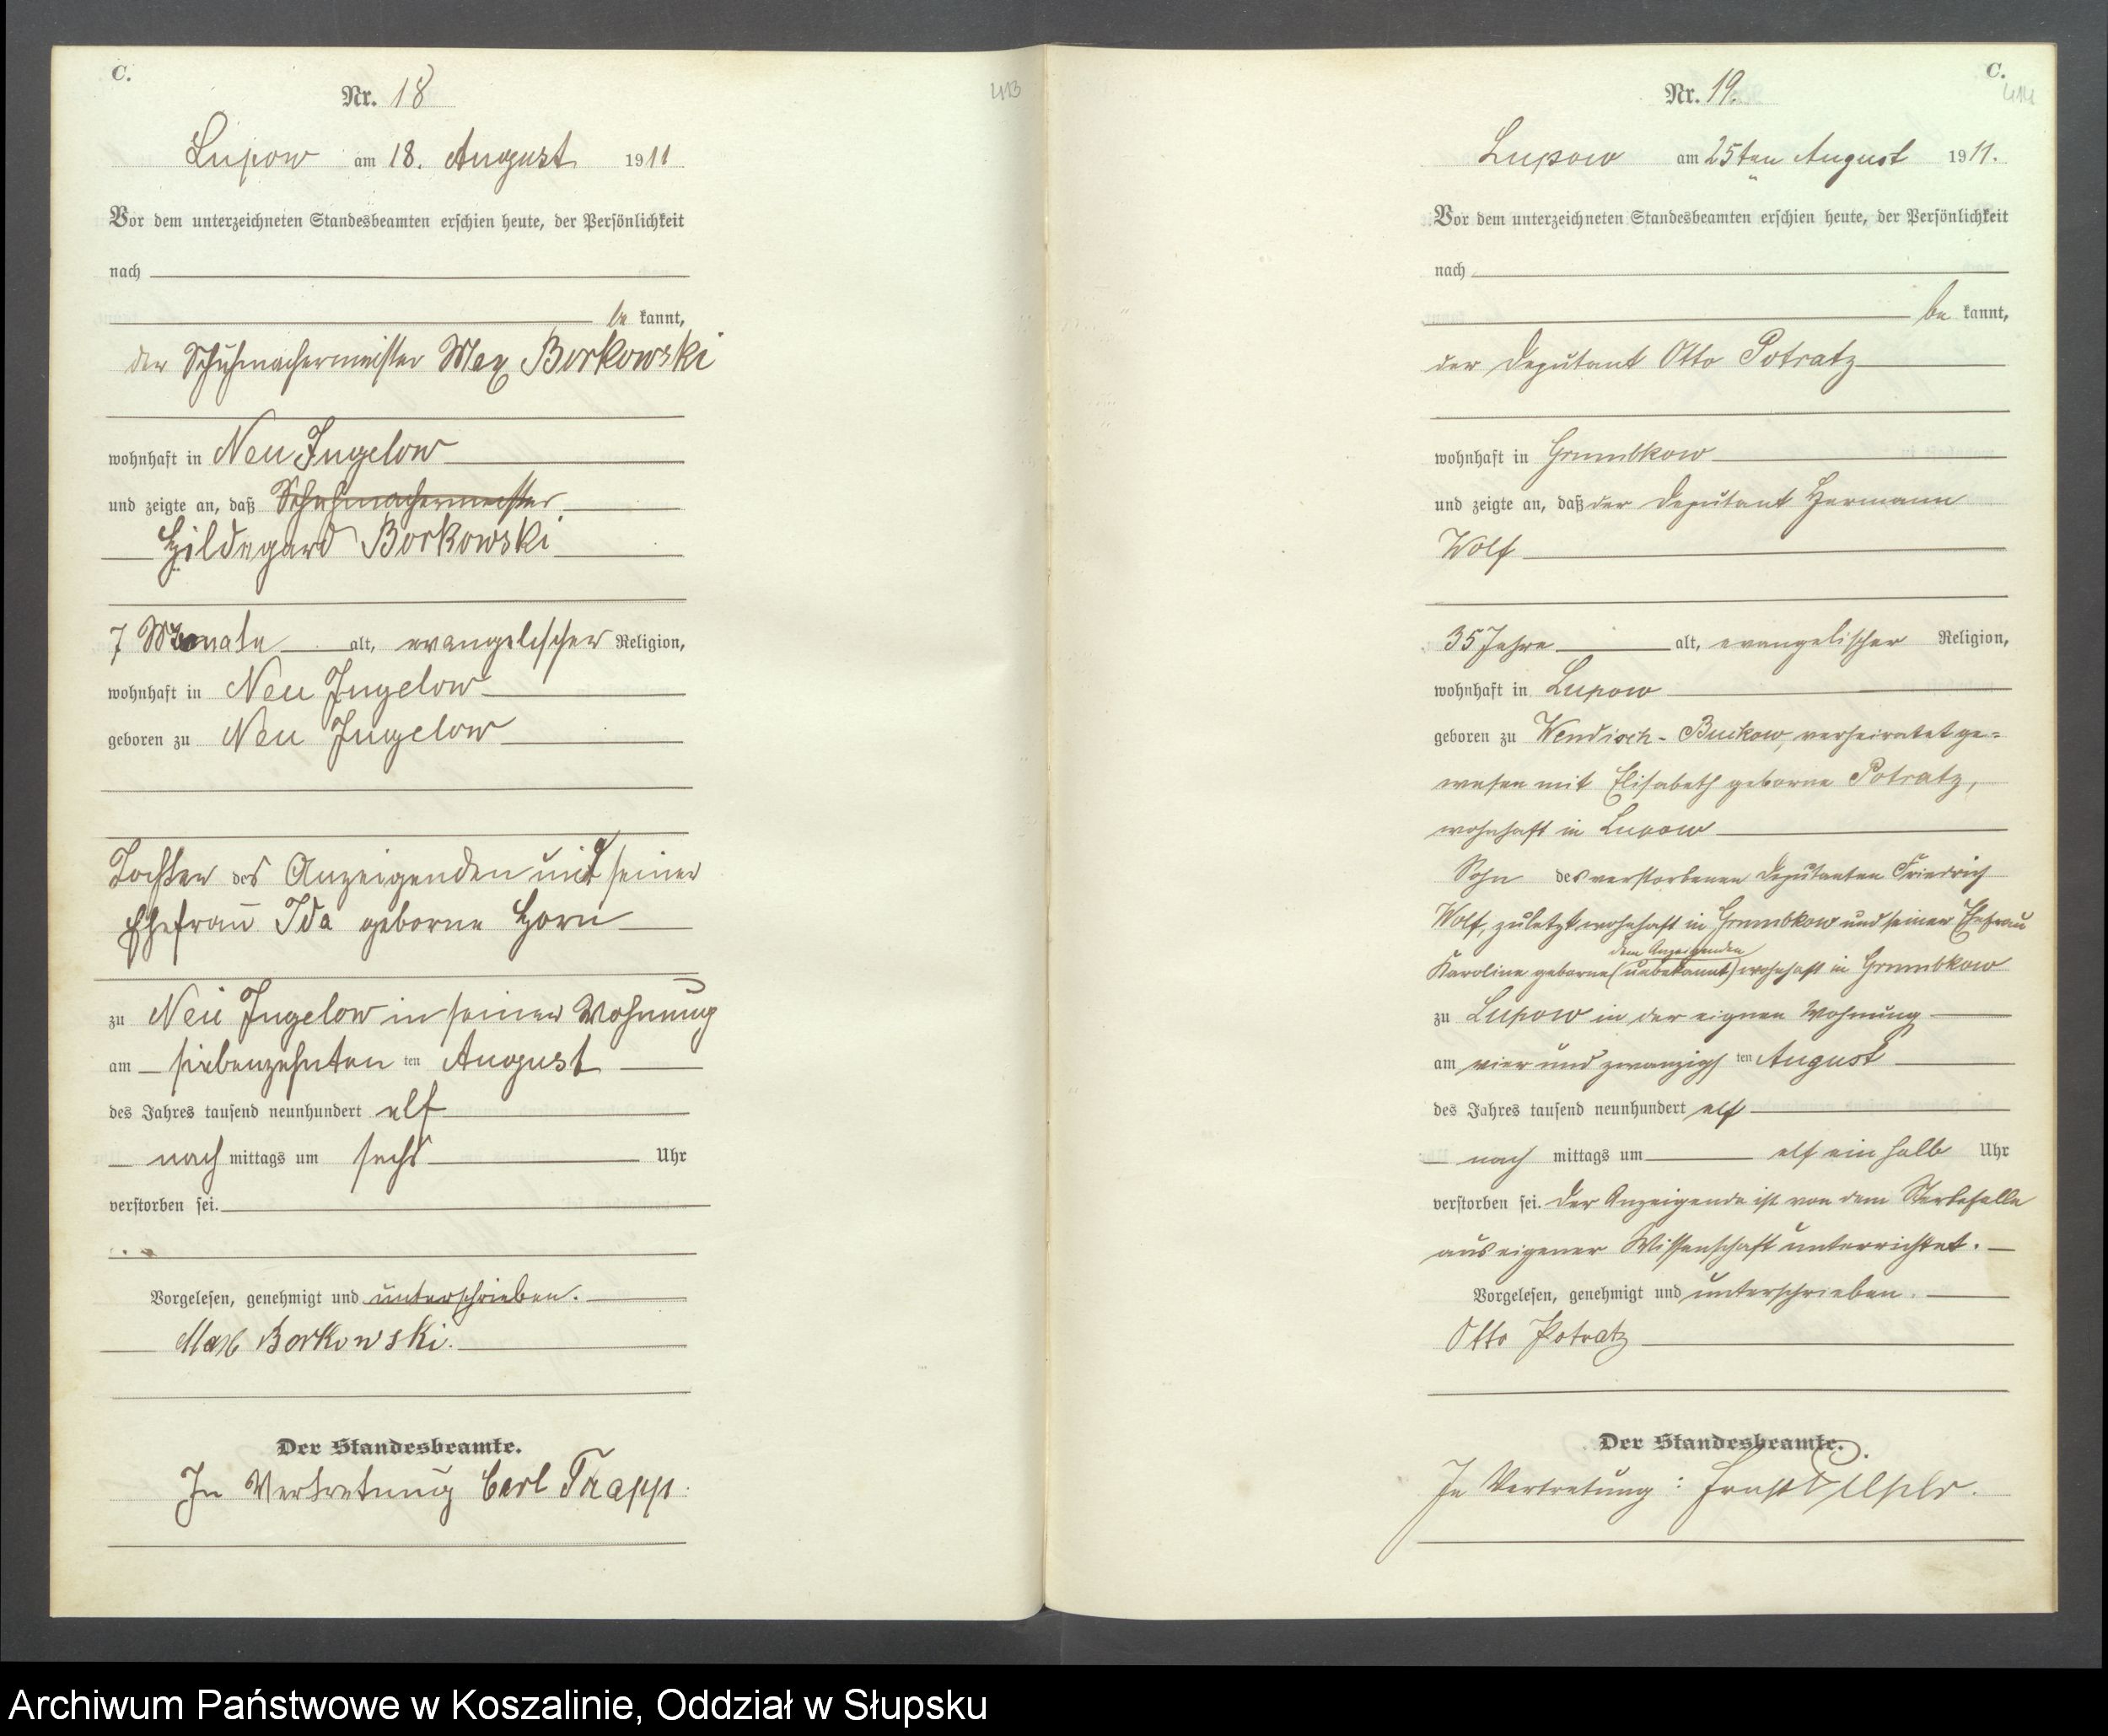 C.
413
Nr. 18
Lupow am 18. August 1911
Vor dem unterzeichneten Standesbeamten erschien heute, der Persönlichkeit
nach
be kannt,
der Schuhmachermeister Max Borkowski
wohnhaft in Neu Jugelow
und zeigte an, daß Schuhmachermeister
Hildegard Borkowski
7 Monate alt, evangelischer Religion,
wohnhaft in Neu Jugelow
geboren zu Neu Jugelow
Tochter des Anzeigenden und seiner
Ehefrau Ida geborne Horn
zu Neu Jugelow in seiner Wohnung
am siebenzehnten ten August
des Jahres tausend neunhundert elf
nach mittags um sechs Uhr
verstorben sei.
Vorgelesen, genehmigt und unterschrieben.
Max Borkowski.
Der Standesbeamte.
In Vertretung Carl Trapp.
C.
414
Nr. 19.
Lupow am 25ten August 1911.
Vor dem unterzeichneten Standesbeamten erschien heute, der Persönlichkeit
nach
be kannt,
der Deputant Otto Potratz
wohnhaft in Grumbkow
und zeigte an, daß der Deputant Hermann
Wolf
35 Jahre alt, evangelischer Religion,
wohnhaft in Lupow
geboren zu Wendisch-Buckow, verheiratet ge=
wesen mit Elisabeth geborne Potratz,
wohnhaft in Lupow
Sohn des verstorbenen Deputanten Friedrich
Wolf, zuletzt wohnhaft in Grumbkow und seiner Ehefrau
dem Anzeigenden
Karoline geborne (unbekannt) wohnhaft in Grumbkow
zu Lupow in der eignen Wohnung
am vier und zwanzigs ten August
des Jahres tausend neunhundert elf
nach mittags um elf ein halb Uhr
verstorben sei. Der Anzeigende ist von dem Sterbefalle
aus eigener Wissenschaft unterrichtet.
Vorgelesen, genehmigt und unterschrieben.
Otto Potratz
Der Standesbeamte.
In Vertretung: Ernst
Archiwum Państwowe w Koszalinie, Oddział w Słupsku